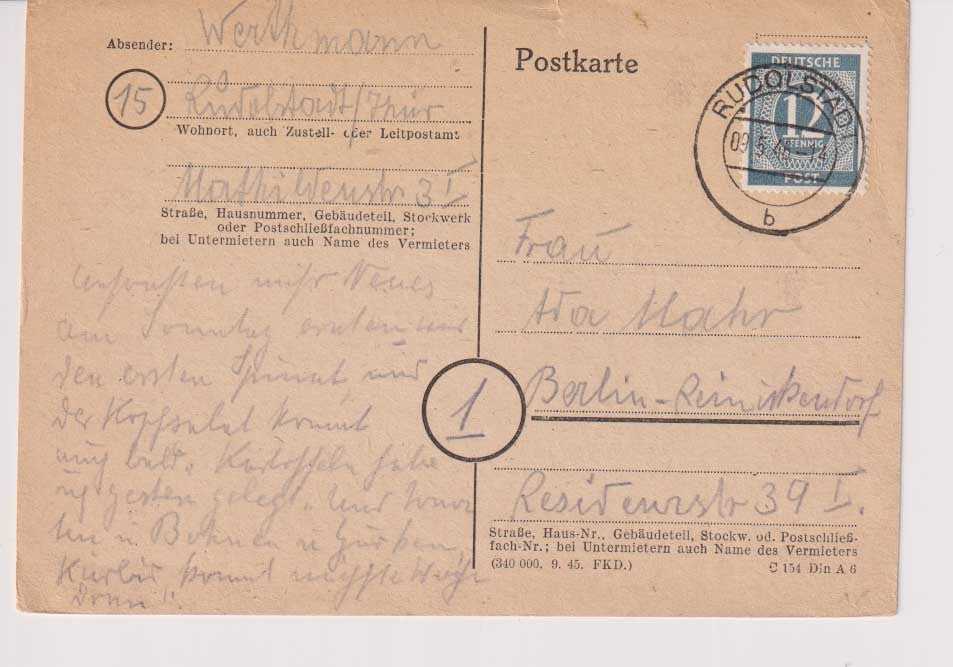 Absender: Werthmann
15
Rudolstadt/Thür
Wohnort, auch Zustell- oder Leitpostamt
Mathildenstr 3 I
Straße, Hausnummer, Gebäudeteil, Stockwerk
oder Postschließfachnummer;
bei Untermietern auch Name des Vermieters
Ansonsten nichts Neues
am Sonntag ernten wir
den ersten Spinat, und
der Kopfsalat kommt
auch bald. Kartoffeln habe
ich gestern gelegt. Und
u Bohnen u Gurken,
Kürbis kommt nächste Woche
dran".
Postkarte
DEUTSCHE
12
PFENNIG
POST
RUDOLSTADT
b
Frau
Ada Mahr
1
Berlin-Reinickendorf
Residenzstr 39 I.
Straße, Haus-Nr., Gebäudeteil, Stockw. od. Postschließ-
fach-Nr.; bei Untermietern auch Name des Vermieters
(340 000. 9. 45. FKD.) C 154 Din A 6